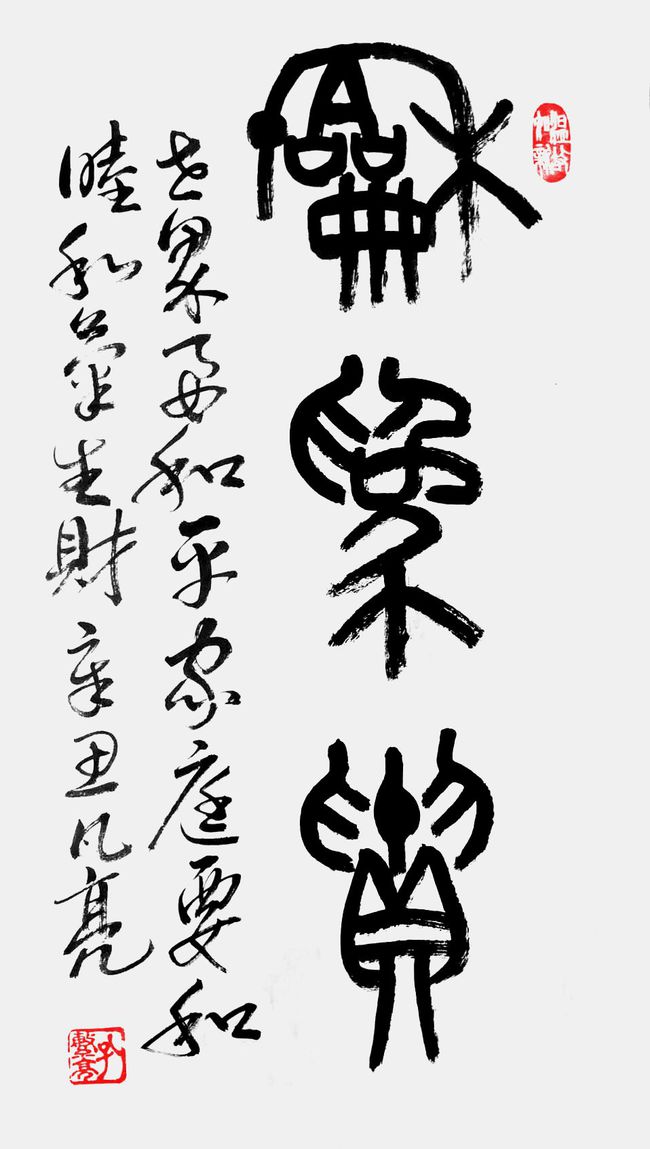 龢為貴
世界要和平家庭要和
睦和氣生財辛丑凡亮